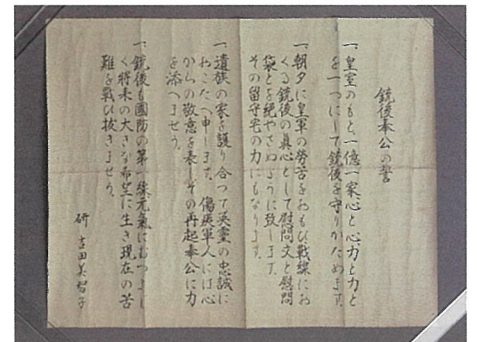 銃後奉公の誓
一、皇室のもと一億一家心と心力と力と
を一つにして銃後を守りかためます。
一、朝夕に皇軍の労苦をおもひ戦線にお
くる銃後の真心として慰問文と慰問
袋とを絶やさぬように致します。
その留守宅の力にもなります。
一、遺族の家を護り合つて英霊の忠誠に
おこたへ申します。傷痍軍人には心
からの敬意を表しその再起奉公に力
を添へませう。
一、銃後も國防の第一線元氣にむつまし
く将来の大きな希望に生き現在の苦
難を戦ひ抜きませう。
研 吉田美智子